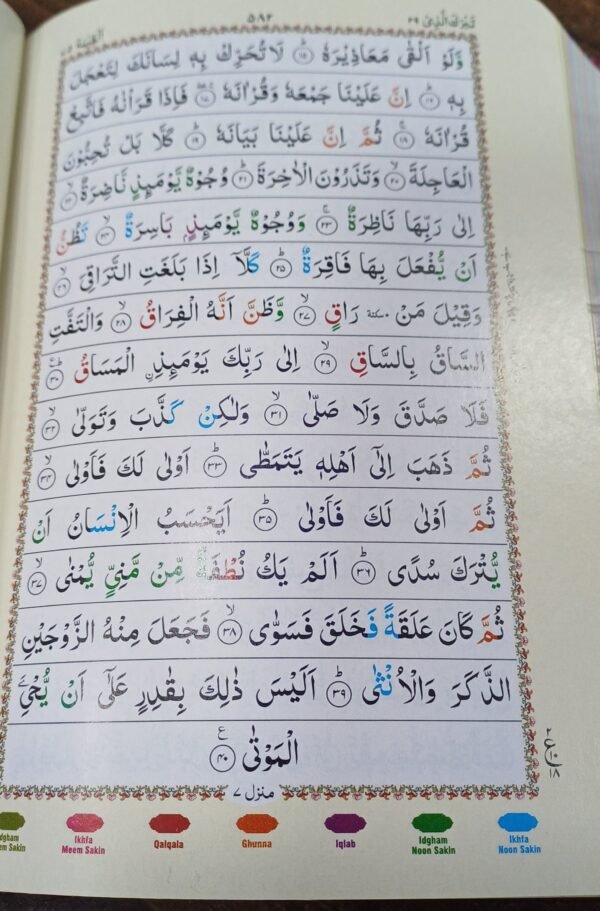 تبٰرك الذی ۲۹
۵۸۲
القیٰمة ۷۵
وَّلَوْ اَلْقٰى مَعَاذِیْرَهٗ ۝۱۵ لَا تُحَرِّكْ بِهٖ لِسَانَكَ لِتَعْجَلَ
بِهٖ ۝۱۶ اِنَّ عَلَیْنَا جَمْعَهٗ وَقُرْاٰنَهٗ ۝۱۷ فَاِذَا قَرَاْنٰهُ فَاتَّبِعْ
قُرْاٰنَهٗ ۝۱۸ ثُمَّ اِنَّ عَلَیْنَا بَیَانَهٗ ۝۱۹ كَلَّا بَلْ تُحِبُّوْنَ
الْعَاجِلَةَ ۝۲۰ وَتَذَرُوْنَ الْاٰخِرَةَ ۝۲۱ وُجُوْهٌ یَّوْمَىِٕذٍ نَّاضِرَةٌ ۝۲۲
اِلٰى رَبِّهَا نَاظِرَةٌ ۝۲۳ وَوُجُوْهٌ یَّوْمَىِٕذٍۭ بَاسِرَةٌ ۝۲۴ تَظُنُّ
اَنْ یُّفْعَلَ بِهَا فَاقِرَةٌ ۝۲۵ كَلَّاۤ اِذَا بَلَغَتِ التَّرَاقِیَ ۝۲۶
وَقِیْلَ مَنْ سكتة رَاقٍ ۝۲۷ وَّظَنَّ اَنَّهُ الْفِرَاقُ ۝۲۸ وَالْتَفَّتِ
السَّاقُ بِالسَّاقِ ۝۲۹ اِلٰى رَبِّكَ یَوْمَىِٕذِ ࣙالْمَسَاقُ ۝۳۰
فَلَا صَدَّقَ وَلَا صَلّٰى ۝۳۱ وَلٰكِنْ كَذَّبَ وَتَوَلّٰى ۝۳۲
ثُمَّ ذَهَبَ اِلٰۤى اَهْلِهٖ یَتَمَطّٰى ۝۳۳ اَوْلٰى لَكَ فَاَوْلٰى ۝۳۴
ثُمَّ اَوْلٰى لَكَ فَاَوْلٰى ۝۳۵ اَیَحْسَبُ الْاِنْسَانُ اَنْ
یُّتْرَكَ سُدًى ۝۳۶ اَلَمْ یَكُ نُطْفَةً مِّنْ مَّنِیٍّ یُّمْنٰى ۝۳۷
ثُمَّ كَانَ عَلَقَةً فَخَلَقَ فَسَوّٰى ۝۳۸ فَجَعَلَ مِنْهُ الزَّوْجَیْنِ
الذَّكَرَ وَالْاُنْثٰى ۝۳۹ اَلَیْسَ ذٰلِكَ بِقٰدِرٍ عَلٰۤى اَنْ یُّحْیِۦَ
الْمَوْتٰى ۝۴۰
۲ ع ۱۰ ۱۸
منزل ۷
Idgham Meem Sakin
Ikhfa Meem Sakin
Qalqala
Ghunna
Iqlab
Idgham Noon Sakin
Ikhfa Noon Sakin